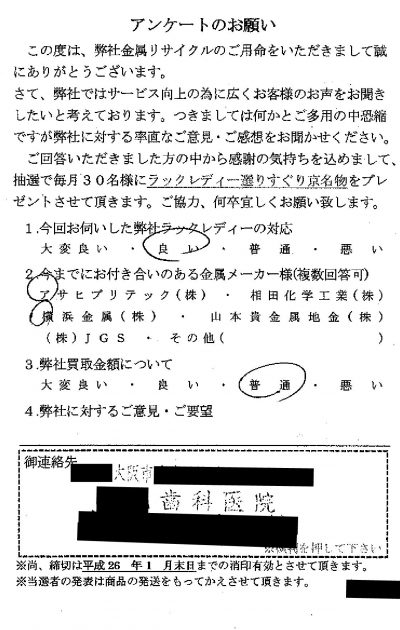 アンケートのお願い
この度は、弊社金属リサイクルのご用命をいただきまして誠
にありがとうございます。
さて、弊社ではサービス向上の為に広くお客様のお声をお聞き
したいと考えております。つきましては何かとご多用の中恐縮
ですが弊社に対する率直なご意見・ご感想をお聞かせください。
ご回答いただきました方の中から感謝の気持ちを込めまして、
抽選で毎月30名様にラックレディー選りすぐり京名物をプレ
ゼントさせて頂きます。ご協力、何卒宜しくお願い致します。
1.今回お伺いした弊社ラックレディーの対応
大変良い ・ 良い ・ 普通 ・ 悪い
2.今までにお付き合いのある金属メーカー様(複数回答可)
アサヒプリテック(株) ・ 相田化学工業(株)
・横浜金属(株) ・ 山本貴金属地金(株)
(株)JGS ・ その他( )
3.弊社買取金額について
大変良い ・ 良い ・ 普通 ・ 悪い
4.弊社に対するご意見・ご要望
御連絡先
大阪市
歯科医院
を押して下さい
※尚、締切は平成26 年1 月末日までの消印有効とさせて頂きます。
※当選者の発表は商品の発送をもってかえさせて頂きます。